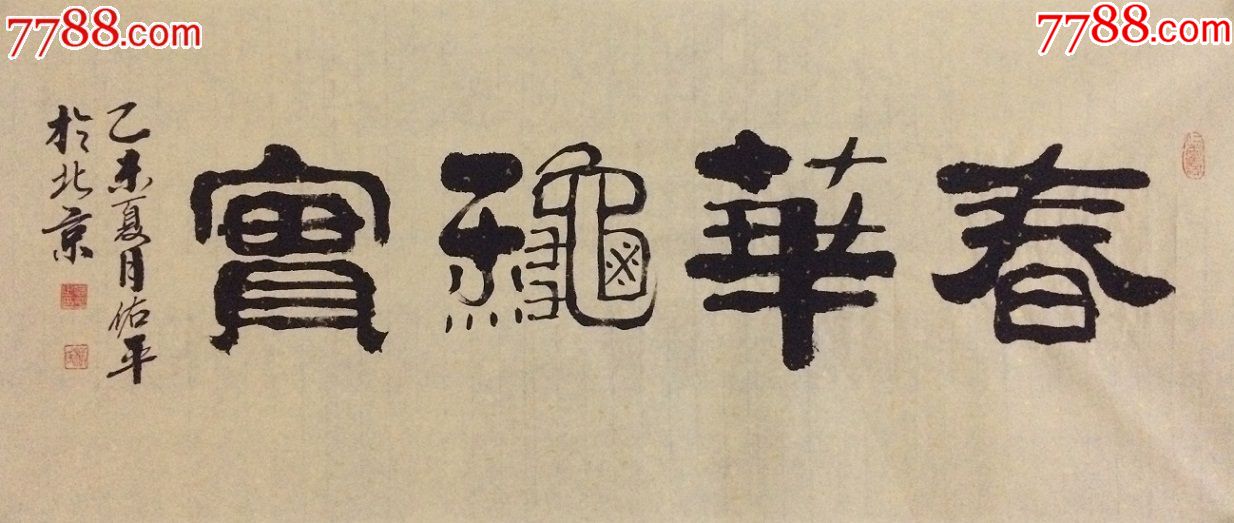 7788.com
7788.com
春華龝實
乙未夏月佑平
於北京